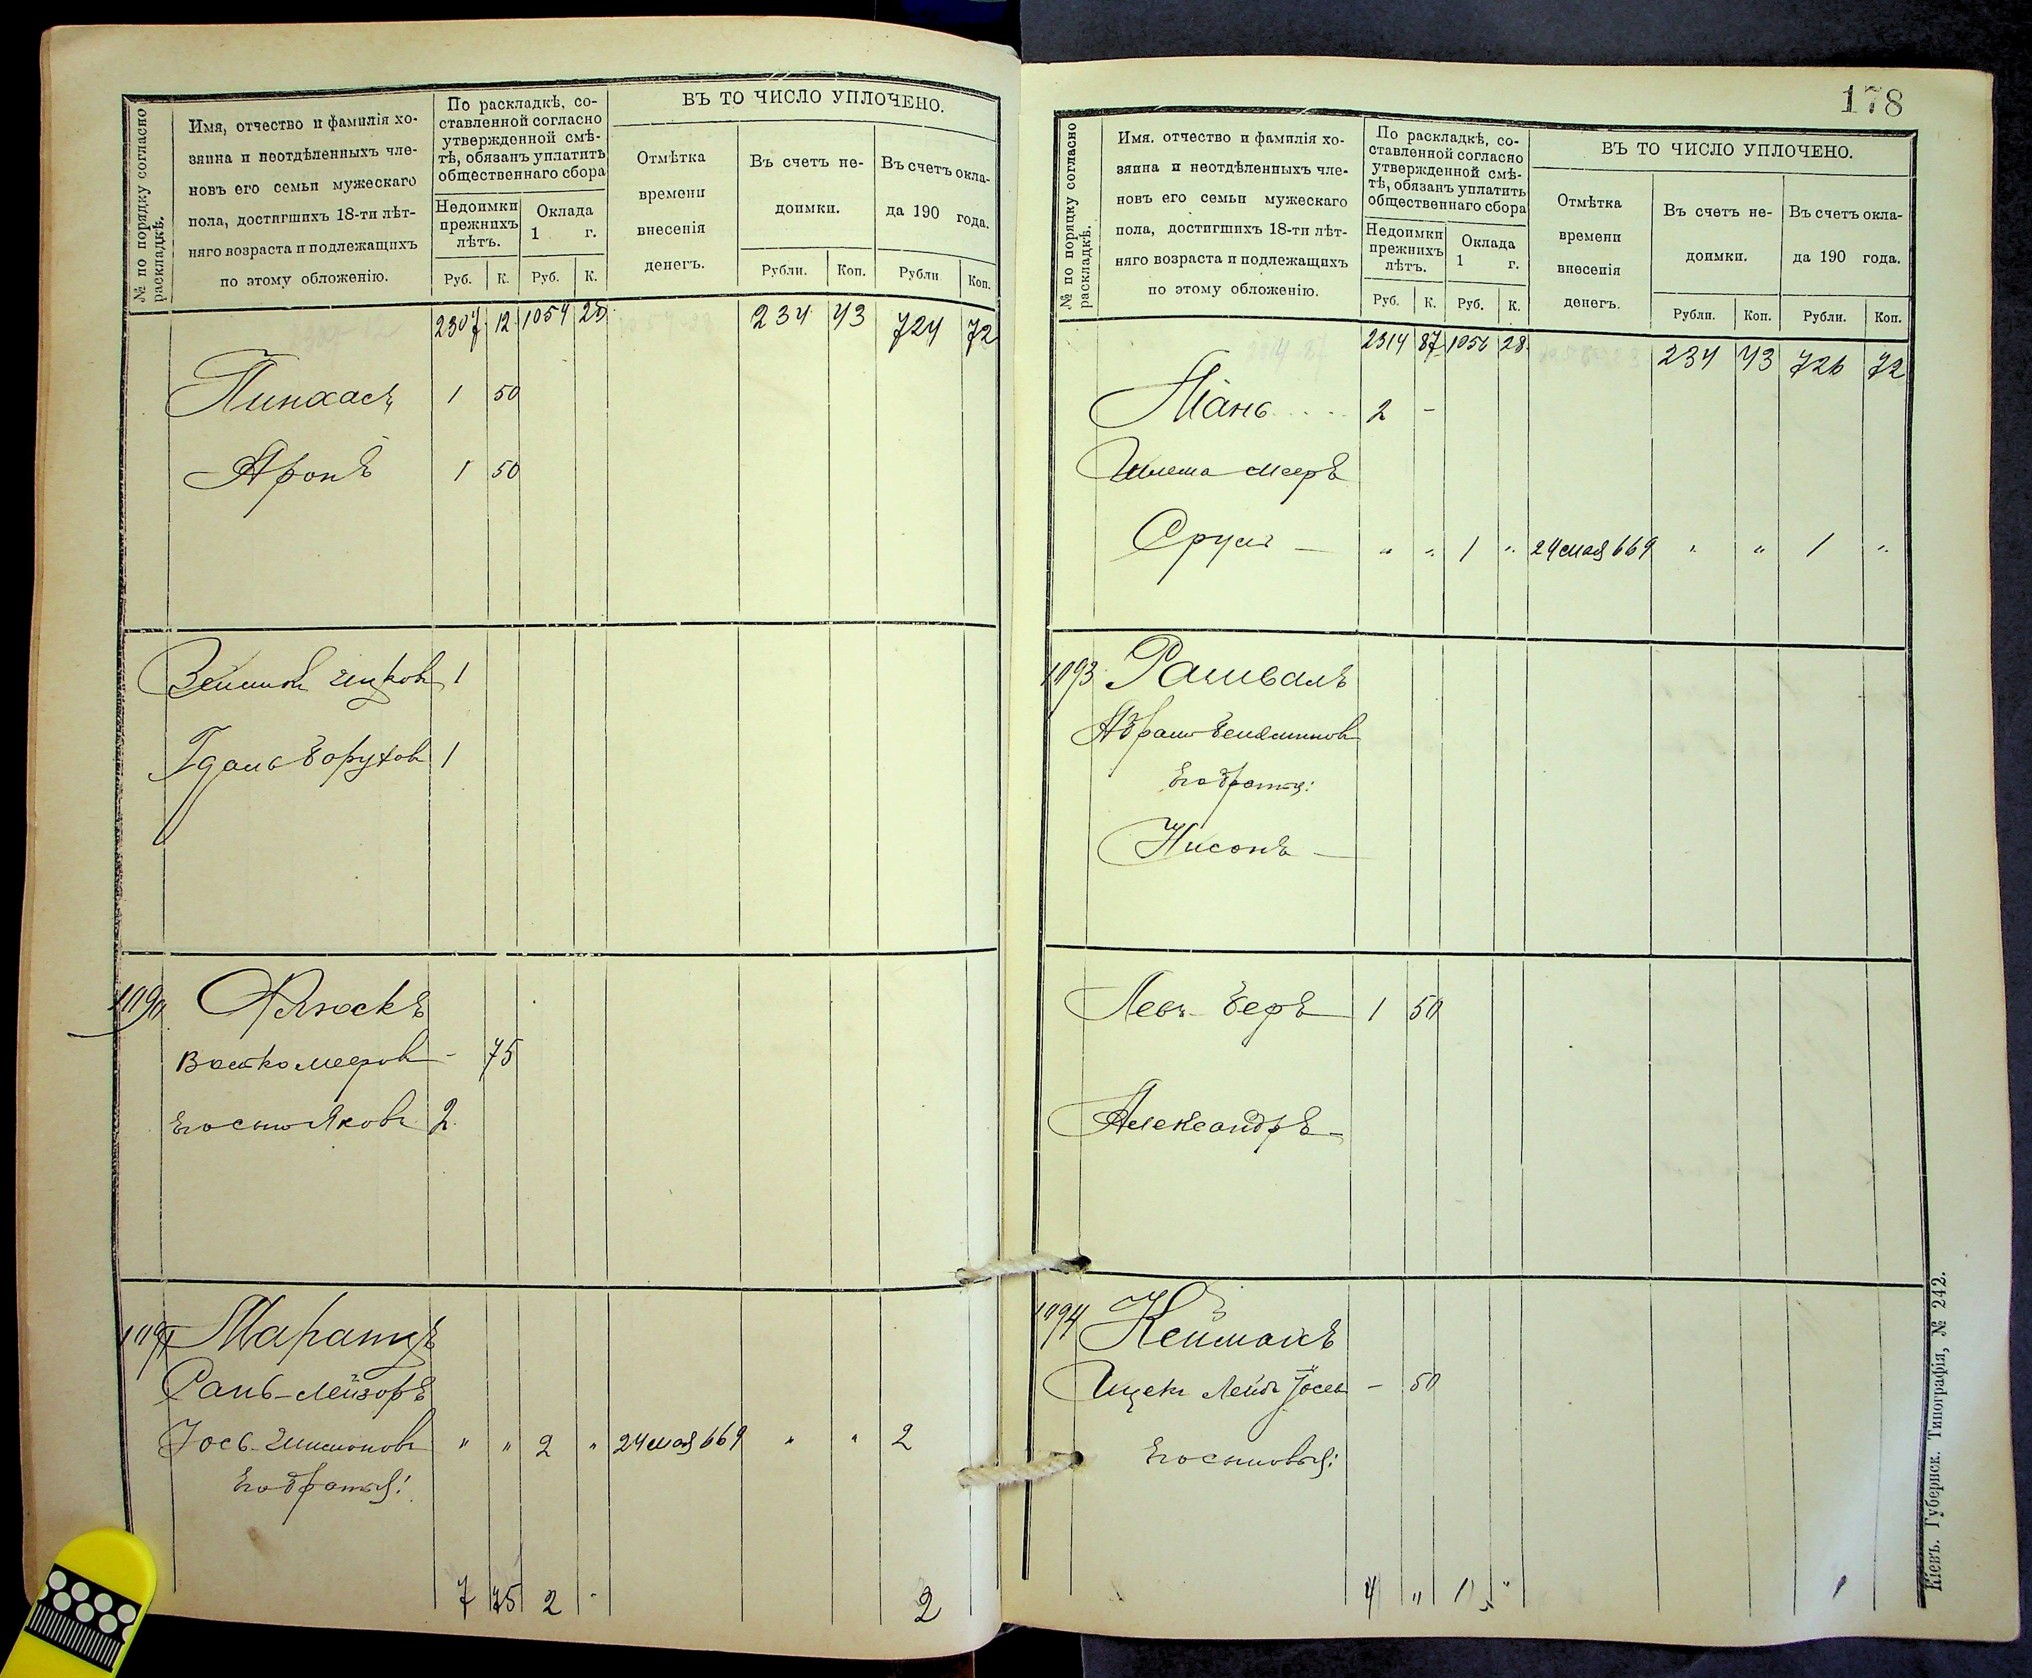 № по порядку согласно раскладкѣ.
Имя, отчество и фамилія хо-
зяина и неотдѣленныхъ чле-
новъ его семьи мужескаго
пола, достигшихъ 18-ти лѣт-
няго возраста и подлежащихъ
по этому обложенію.
По раскладкѣ, со-
ставленной согласно
утвержденной смѣ-
тѣ, обязанъ уплатить
общественнаго сбора
Недоимки
прежнихъ
лѣтъ.
Оклада
1 г.
Руб. К. Руб. К.
ВЪ ТО ЧИСЛО УПЛОЧЕНО.
Отмѣтка
времени
внесенія
денегъ.
Въ счетъ не-
доимки.
Рубли. Коп.
Въ счетъ окла-
да 190 года.
Рубли Коп.
2307 12 1054 28 234 43 724 72
Пинхасъ 1 50
Аронъ 1 50
1
Гдаль Борухов 1
1090
Войтко Мееров - 75
Его сынъ Яковъ 2
1091
Лейзоръ
Іось Шимоновъ " " 2 " 24 мая 669 " " 2
Его братья:
7 75 2 - 2
178
№ по порядку согласно раскладкѣ.
Имя. отчество и фамилія хо-
зяина и неотдѣленныхъ чле-
новъ его семьи мужескаго
пола, достигшихъ 18-ти лѣт-
няго возраста и подлежащихъ
по этому обложенію.
По раскладкѣ, со-
ставленной согласно
утвержденной смѣ-
тѣ, обязанъ уплатить
общественнаго сбора
Недоимки
прежнихъ
лѣтъ.
Оклада
1 г.
Руб. К. Руб. К.
ВЪ ТО ЧИСЛО УПЛОЧЕНО.
Отмѣтка
времени
внесенія
денегъ.
Въ счетъ не-
доимки.
Рубли. Коп.
Въ счетъ окла-
да 190 года.
Рубли. Коп.
2314 87 1056 28 234 43 726 72
2 -
Шлема Мееръ
Сруль - " " 1 " 24 мая 669 " " 1 "
1093 Рашваль
Абрамъ Беняминов
Его братья:
Нисонъ -
Левъ-Беръ 1 50
Александръ -
1094 Нейманъ
Ицекъ Лейбъ Іосев - 50
Его сыновья:
4 " 1 " 1
Кіевъ. Губернск. Типографія, № 242.